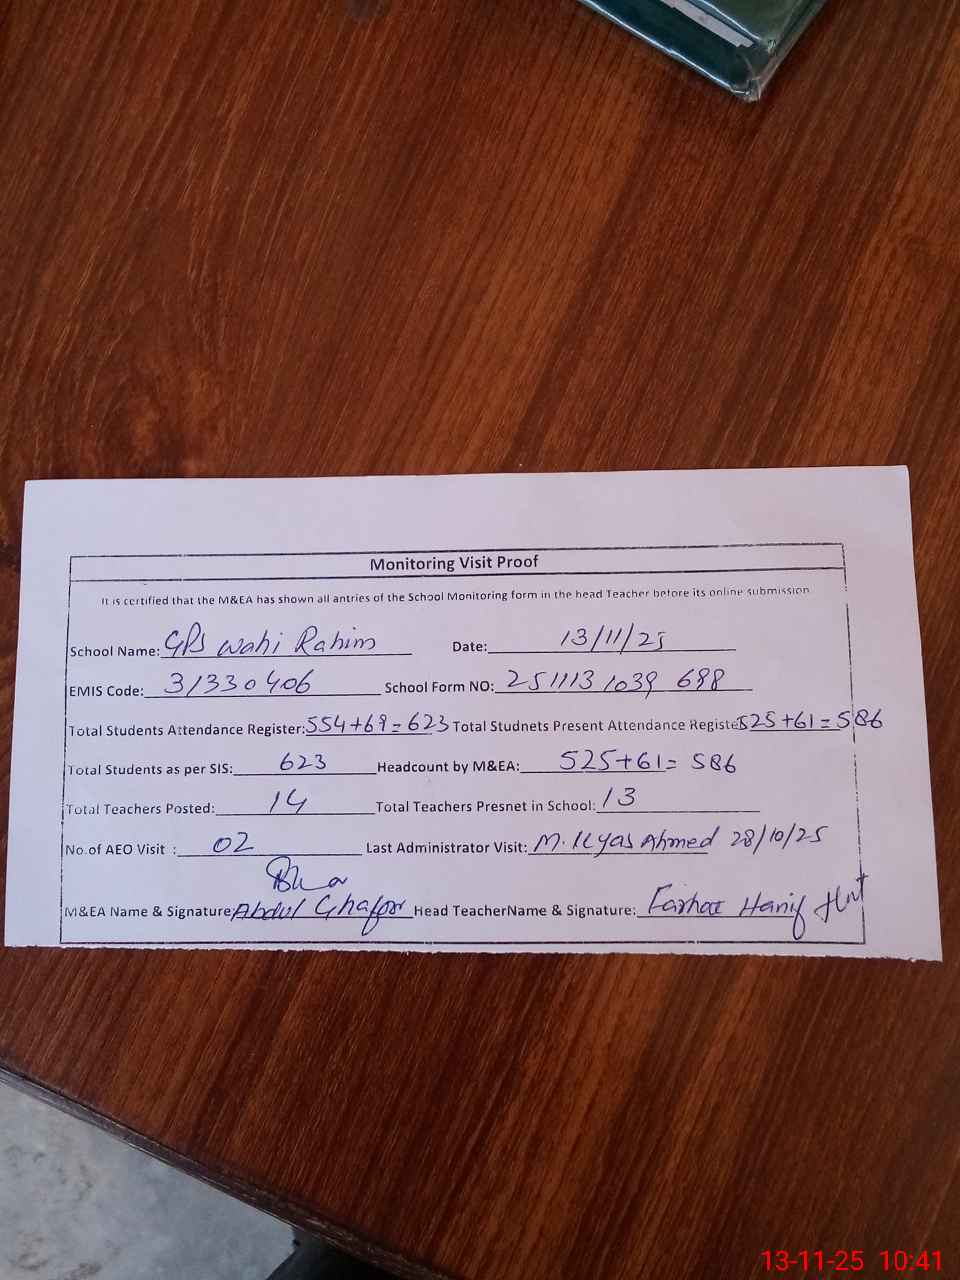 Monitoring Visit Proof
It is certified that the M&EA has shown all antries of the School Monitoring form in the head Teacher before its online submission
School Name: GPS Wahi Rahim Date: 13/11/25
EMIS Code: 31330406 School Form NO: 251113 1039 698
Total Students Attendance Register: 554+69=623 Total Studnets Present Attendance Registe 525+61=586
Total Students as per SIS: 623 Headcount by M&EA: 525+61= 586
Total Teachers Posted: 14 Total Teachers Presnet in School: 13
No.of AEO Visit : 02 Last Administrator Visit: M. Ilyas Ahmed 28/10/25
M&EA Name & Signature: Abdul Ghafoor Head TeacherName & Signature: Farhat Hanif
13-11-25 10:41